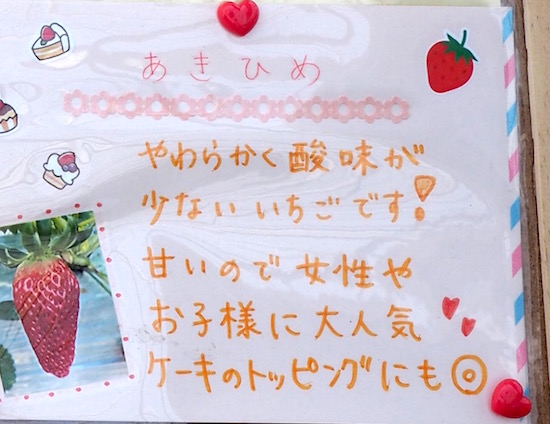 あきひめ
やわらかく酸味が
少ないいちごです!
甘いので女性や
お子様に大人気
ケーキのトッピングにも◎